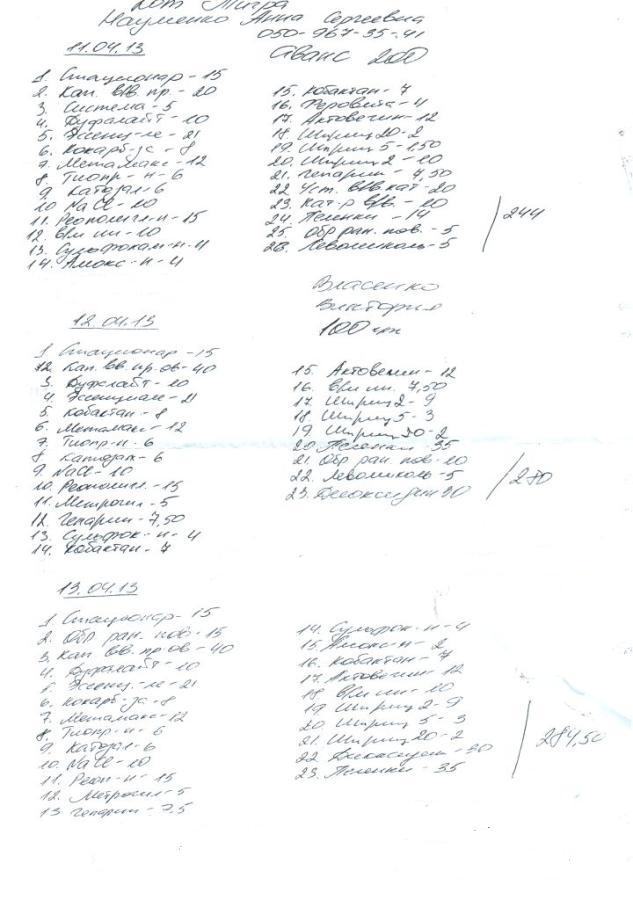 Кот Тигра
Науменко Анна Сергеевна
050-967-35-41
11.04.13
Аванс 200
1. Стационар - 15
2. Кап. в/в. пр. - 20
3. Система - 5
4. Буфалайт - 10
5. Эссенц-ле - 21
6. Кокарб-за - 8
7. Метамакс - 12
8. Тиопр-н - 6
9. Катозал - 6
10. NaCl - 10
11. Реополигл-н - 15
12. В/м ин - 10
13. Сульфокам-н - 4
14. Амокс-н - 4
15. Кобактан - 7
16. - 4
17. Актовегин - 12
18. Шприц 20 - 2
19. Шприц 5 - 1,50
20. Шприц 2 - 10
21. Гепарин - 7,50
22. Уст. в/в. кат - 20
23. Кат-р в/в. - 20
24. Пеленки - 14
25. Обр ран. пов. - 5
26. Левомиколь - 5
/ 244
Власенко
Виктория
100 грн
12.04.13
1. Стационар - 15
2. Кап. в/в. пр. ов - 40
3. Буфалайт - 10
4. Эссенциале - 21
5. - 8
6. Метамакс - 12
7. Тиопр-н - 6
8. Катозал - 6
9. NaCl - 10
10. Реополигл. - 15
11. Метрогил - 5
12. Гепарин - 7,50
13. Сульфок-н - 4
14. Кобактан - 7
15. Актовегин - 12
16. В/м ин. 7,50
17. Шприц 2 - 9
18. Шприц 5 - 3
19. Шприц 20 - 2
20. Пеленки 35
21. Обр ран. пов - 10
22. Левомиколь - 5
23. Диоксидин 30
/ 280
13.04.13
1. Стационар - 15
2. Обр ран. пов. - 15
3. Кап. в/в. пр. ов - 40
4. Буфалайт - 10
5. Эссенц. - ле - 21
6. Кокарб-за - 8
7. Метамакс - 12
8. Тиопр-н - 6
9. Катозал - 6
10. NaCl - 10
11. Реоп-н - 15
12. Метрогил - 5
13. Гепарин - 7,5
14. Сульфок-н - 4
15. Амокс-н - 2
16. Кобактан - 7
17. Актовегин - 12
18. В/м ин - 10
19. Шприц 2 - 9
20. Шприц 5 - 3
21. Шприц 20 - 2
22. Диоксидин - 30
23. Пеленки - 35
/ 284,50